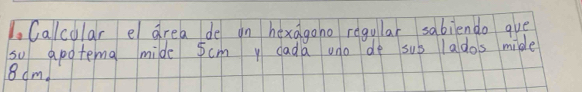 1. Calcular el área de un hexágono regular sabiendo que
su apotema mide 5cm y cada uno de sus lados mide
8cm.